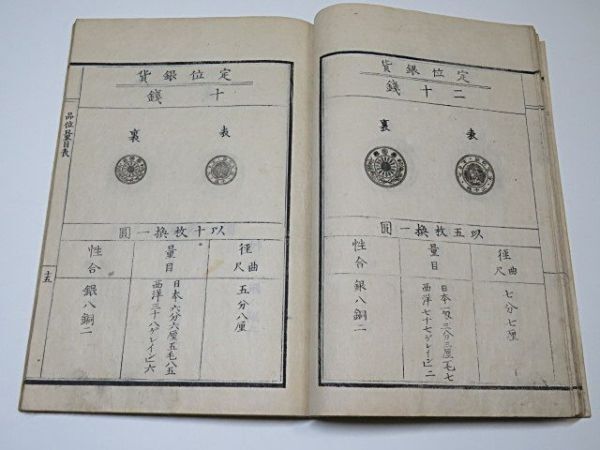 定位銀貨
二十錢
表
裏
以五枚換一圓
徑曲尺
七分七厘
量目
西洋七十七ゲレイン二
性合
銀八銅二
定位銀貨
十錢
表
裏
以十枚換一圓
徑曲尺
五分八厘
量目
日本六分六厘五毛八五
西洋三十八ゲレイン六
性合
銀八銅二
品位量目表
十五